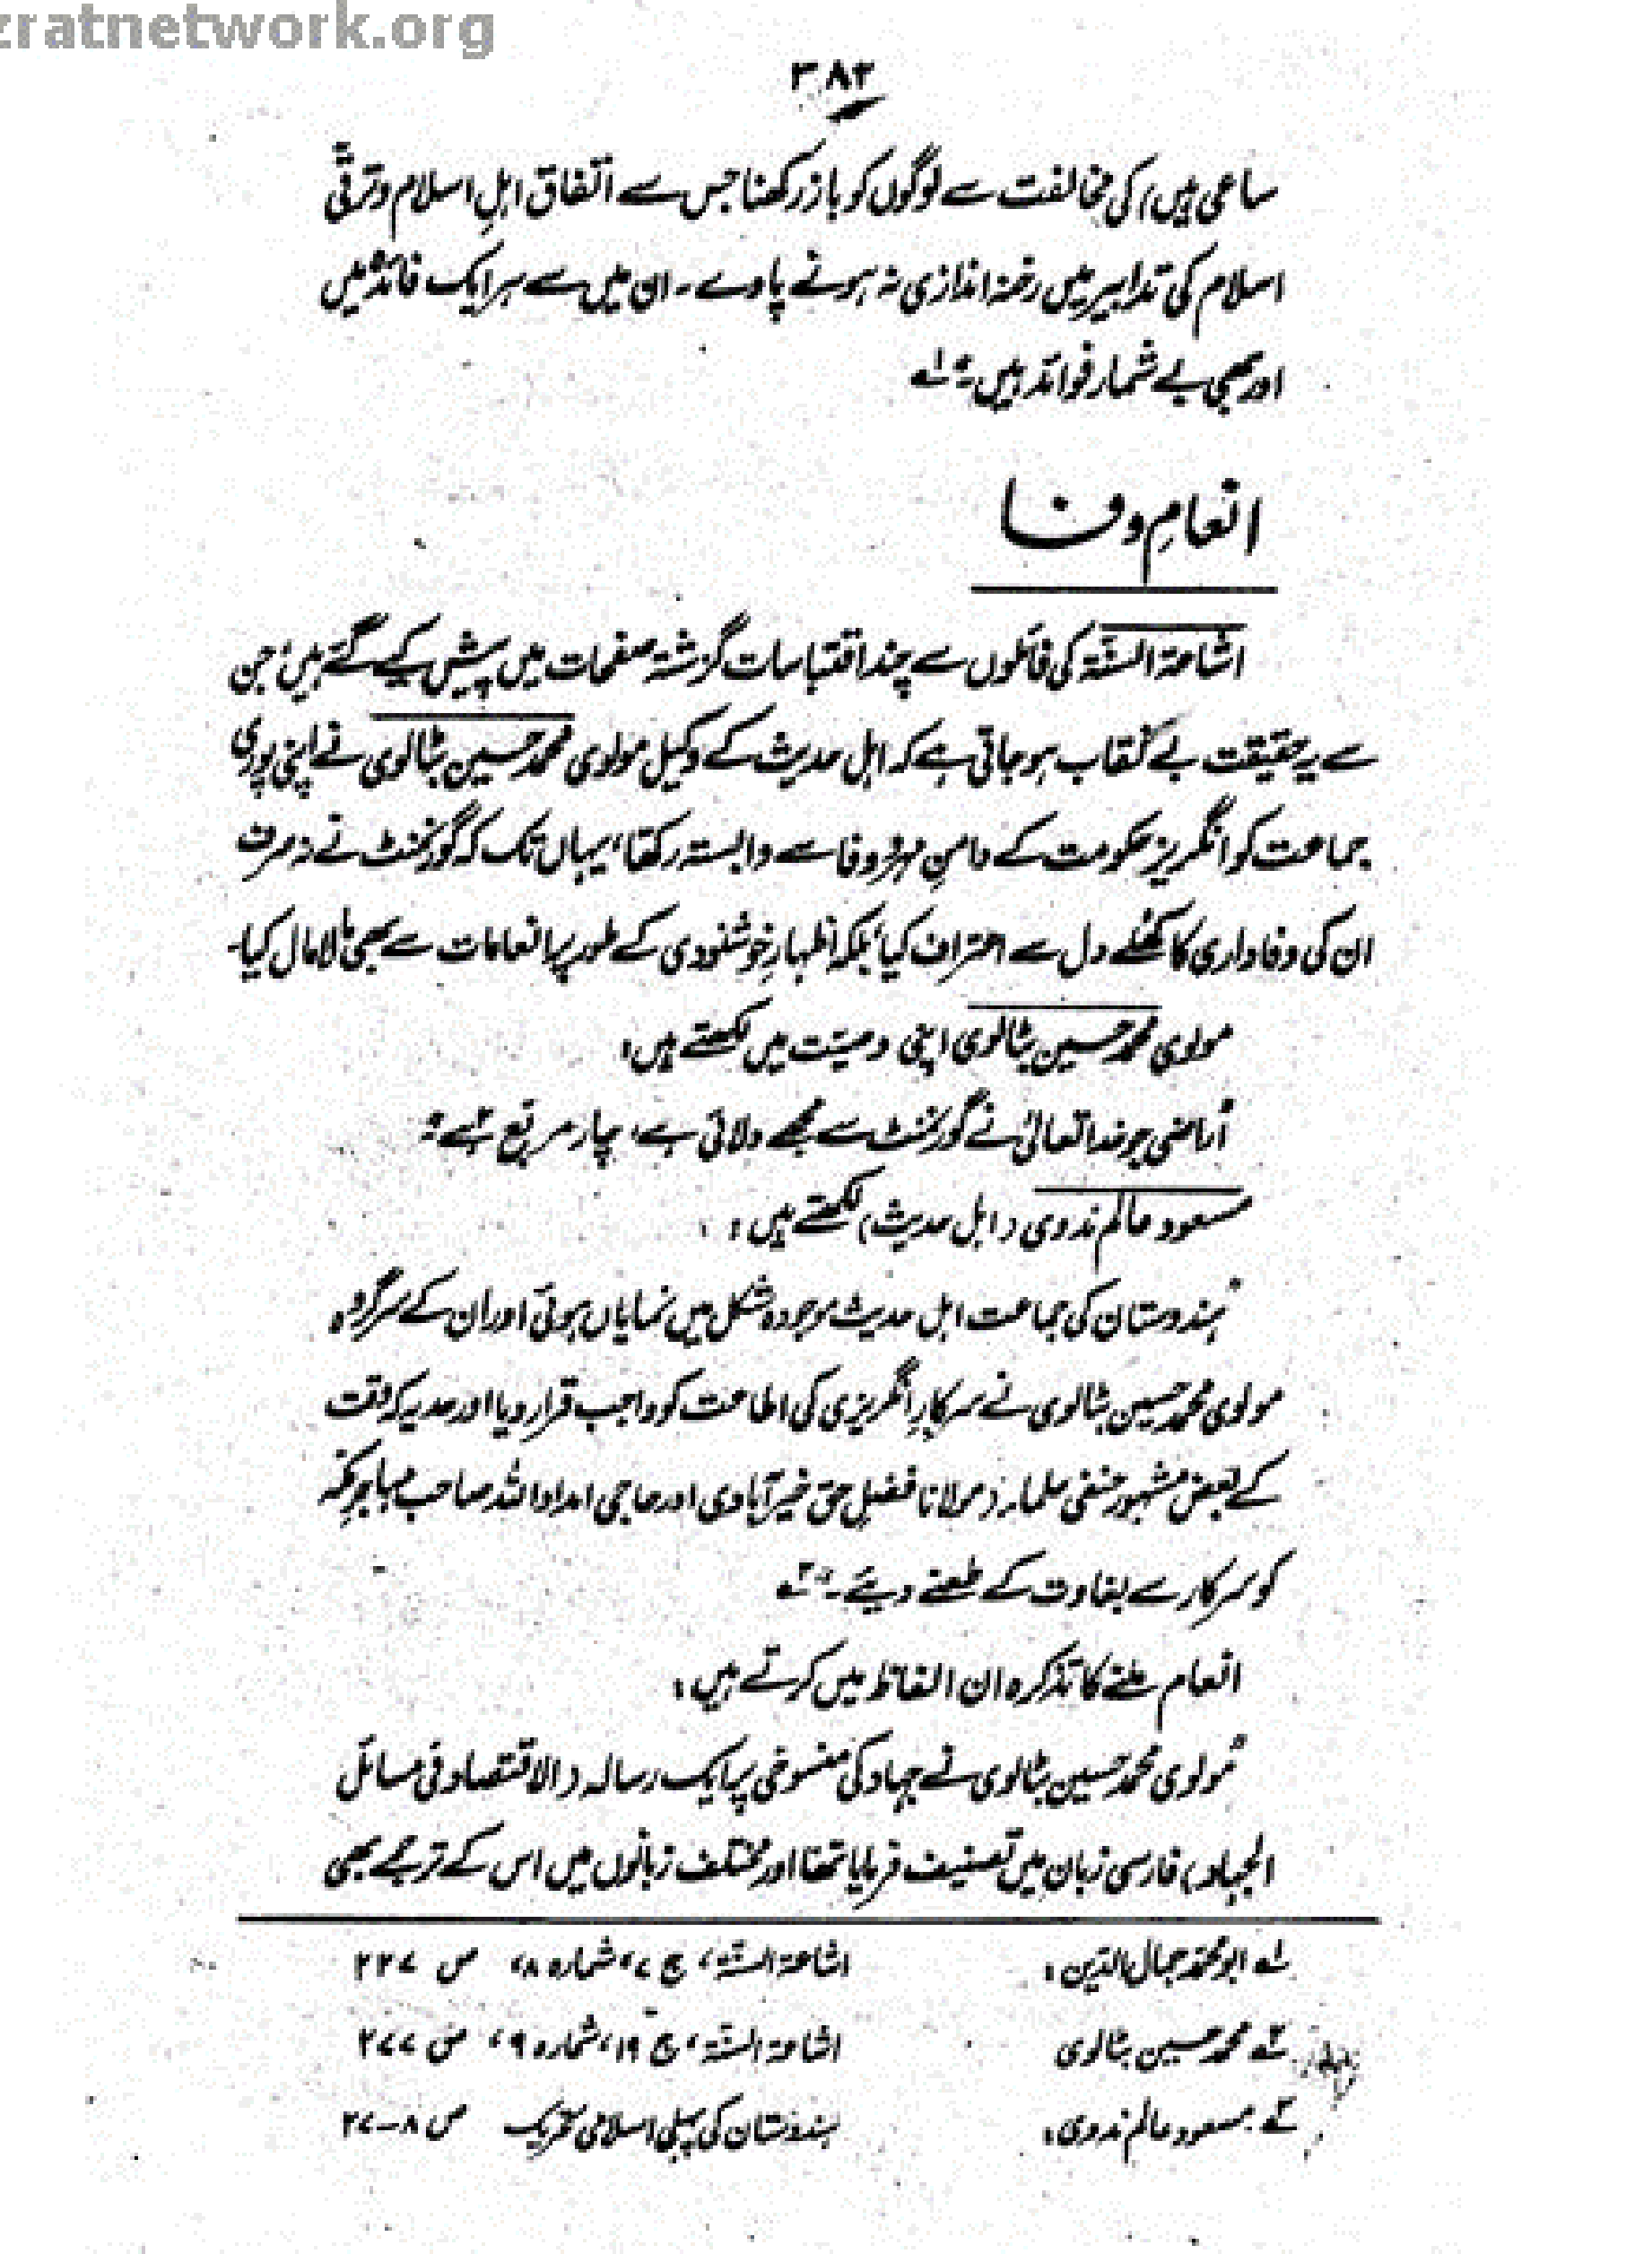 zratnetwork.org
۳۸۲
ساعی ہیں) کی مخالفت سے لوگوں کو باز رکھنا جس سے اتفاق اہلِ اسلام و ترقیٔ
اسلام کی تدابیر میں رخنہ اندازی نہ ہونے پاوے۔ ان میں سے ہر ایک فائدہ میں
اور بھی بے شمار فوائد ہیں۔" لہ
انعامِ وفا
اشاعۃ السنّۃ کی فائلوں سے چند اقتباسات گزشتہ صفحات میں پیش کیے گئے ہیں، جن
سے یہ حقیقت بے نقاب ہو جاتی ہے کہ اہل حدیث کے وکیل مولوی محمد حسین بٹالوی نے اپنی پوری
جماعت کو انگریز حکومت کے دامنِ مہر و وفا سے وابستہ رکھا، یہاں تک کہ گورنمنٹ نے نہ صرف
ان کی وفاداری کا کھلے دل سے اعتراف کیا، بلکہ اظہارِ خوشنودی کے طور پر انعامات سے بھی مالا مال کیا۔
مولوی محمد حسین بٹالوی اپنی وصیّت میں لکھتے ہیں:
"اراضی جو خدا تعالیٰ نے گورنمنٹ سے مجھے دلائی ہے، چار مربّع ہے۲"
مسعود عالم ندوی (اہل حدیث) لکھتے ہیں:
"ہندوستان کی جماعت اہل حدیث موجودہ شکل میں نمایاں ہوئی اور ان کے سرگروہ
مولوی محمد حسین بٹالوی نے سرکارِ انگریزی کی اطاعت کو واجب قرار دیا اور حد یہ کہ وقت
کے بعض مشہور حنفی علماء (مولانا فضلِ حق خیر آبادی اور حاجی امداد اللہ صاحب مہاجر مکّہ
کو سرکار سے بغاوت کے طعنے دیئے۔" ۳
انعام ملنے کا تذکرہ ان الفاظ میں کرتے ہیں:
"مولوی محمد حسین بٹالوی نے جہاد کی منسوخی پر ایک رسالہ (الاقتصاد فی مسائل
الجہاد) فارسی زبان میں تصنیف فرمایا تھا اور مختلف زبانوں میں اس کے ترجمے بھی
لہ ابو محمد جمال الدین: اشاعۃ السنّۃ، ج ۷، شمارہ ۸، ص ۲۲۷
۲ محمد حسین بٹالوی اشاعۃ السنّۃ، ج ۱۹، شمارہ ۹، ص ۲۷۷
۳ مسعود عالم ندوی: ہندوستان کی پہلی اسلامی تحریک ص ۸-۲۷